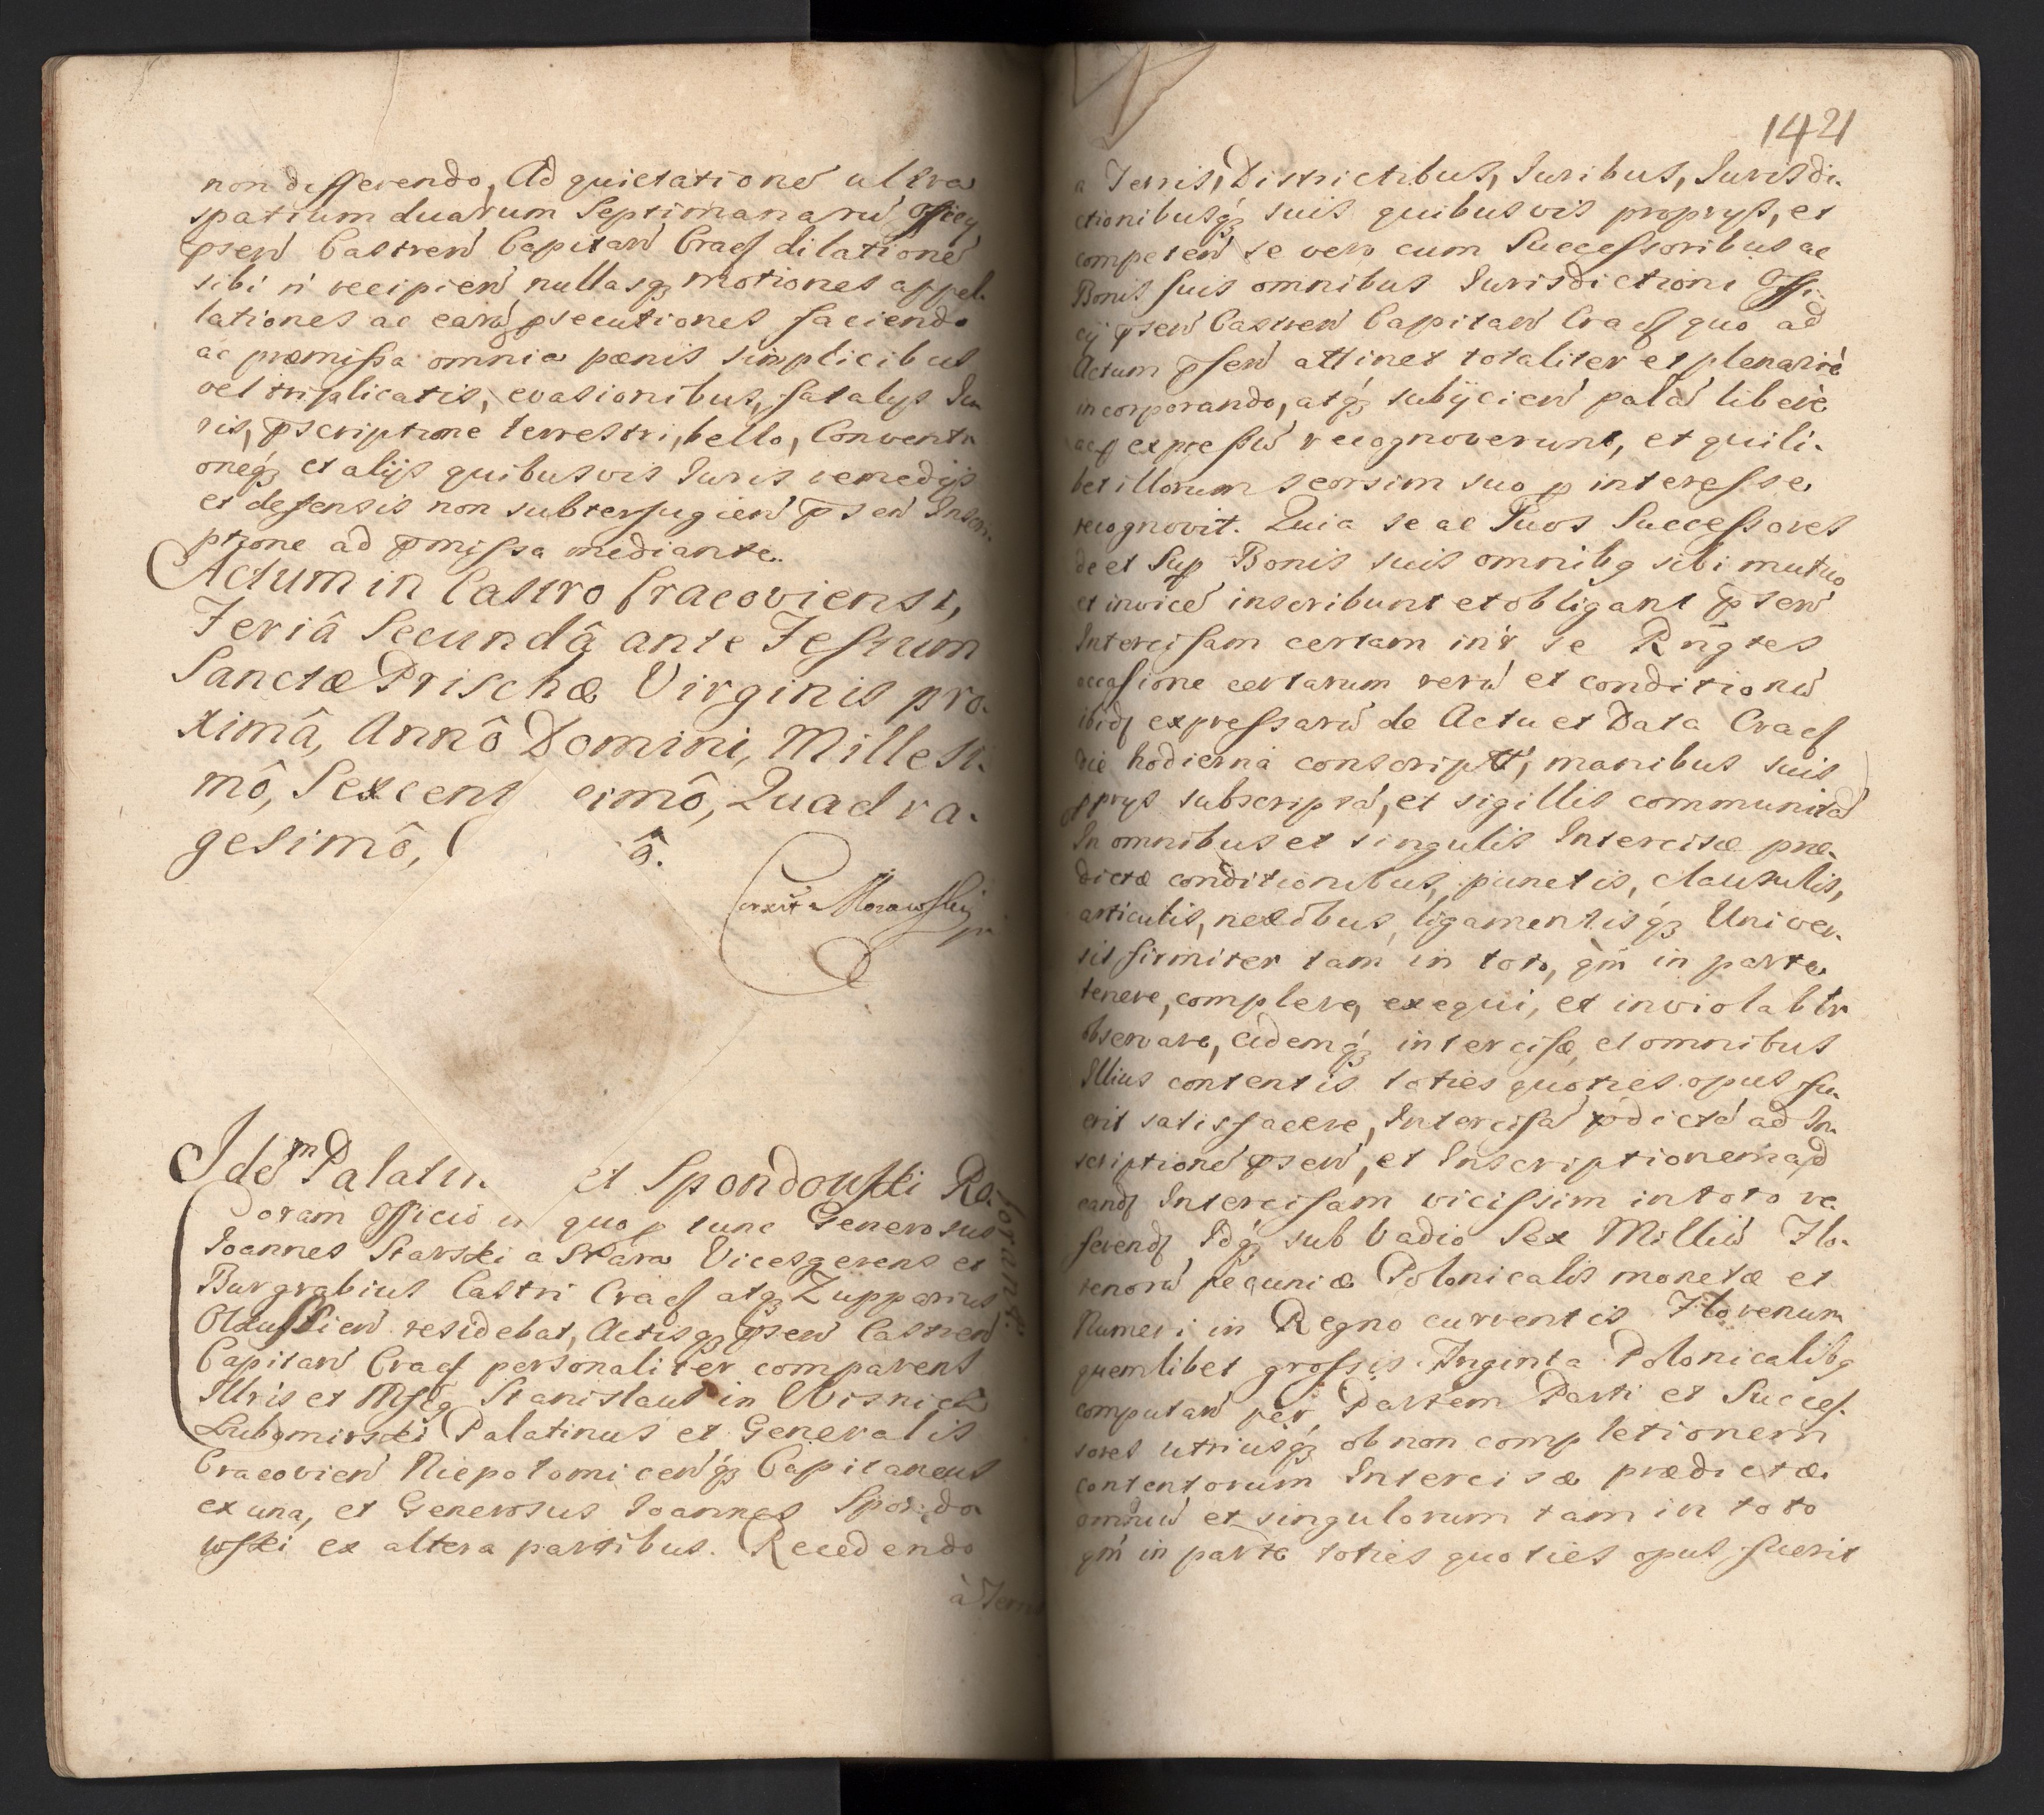 non differendo, Ad quietatione ultra
spatium duarum Septimanarũ Officy
pñsen Castren Capitan Cracꝭ dilatione
sibi ñ recipien nullasqꝫ motiones appel-
lationes ac earũ psecutiones faciendo
ac præmissa omnia pænis simplicibus
vel triplicatis, evasionibus, fatalys Iu
ris, pscriptione terrestri, bello, Conventi
oneqꝫ et alijs quibusvis Iuris remedijs
et defensis non subterfugien pñsen Inscri-
ptione ad pmissa mediante.
Actum in Castro Cracoviensi,
Feriâ Secundâ ante Festum
Sanctæ Prischæ Virginis pro-
ximâ, Annô Domini, Millesi-
mô, Sexcent esimô, Quadra-
gesimô, ô.
Morawsky
Idem Palatin et Spondowski Ro-
borant
Coram Officio quo p tunc Generosus
Ioannes Starski a Stara Vicesgerens et
Burgrabius Castri Cracꝭ atqꝫ Zupparius
Olkussien residebat, Actisqꝫ pñsen Castren
Capitan Cracꝭ personaliter comparens
Illris et Mgcꝯ Stanislaus in Wisnicz
Lubomirski Palatinus et Generalis
Cracovien Niepolomicenqꝫ Capitaneus
ex una, et Generosus Ioannes Spondo
wski ex altera partibus. Recedendo
à Terris
1421
a Terris, Districtibus, Iuribus, Iurisdi-
ctionibusqꝫ suis quibusvis proprys, et
competen se vero cum Successoribus ac
Bonis suis omnibus Iurisdictioni Offi-
cij pñsen Castren Capitan Cracꝭ quo ad
Actum pñsen attinet totaliter et plenariè
incorporando, atqꝫ subijcien palã liberè
acꝭ expressè recognoverunt, et quili-
bet illorum seorsim suo p interesse
recognovit. Quia se ac Suos Successores
de et Sup Bonis suis omnibꝯ sibi mutuo
et invicẽ inscribunt et obligant pñsen
Intercisam certam int̃r se Rñgtes
occasione certarum rerũ et conditionũ
ibidꝭ expressarũ de Actu et Data Cracꝭ
die hodierna conscriptã, manibus suis
pprys subscriptã, et sigillis communitã
In omnibus et singulis Intercisæ præ-
dictæ conditionibus, punctis, clausulis,
articulis, nexibus, ligamentisqꝫ Univer-
sis firmiter tam in toto, qm̃ in parte
tenere, complere, exequi, et inviolablr
observare, eidemqꝫ intercisæ et omnibus
Illius contentis toties quoties opus fu-
erit satisfacere, Intercisã pdictã ad In-
scriptionẽ pñsen, et Inscriptionem ad
eandꝭ Intercisam vicissim in toto re-
ferendꝭ Idqꝫ sub vadio Sex Milliũ Flo-
renorũ pecuniæ Polonicalis monetæ et
Numeri in Regno currentis Florenum
quemlibet grossis Triginta Polonicalibꝯ
computan per Partem Parti et Succes-
sores utriusqꝫ ob non completionem
contentorum Intercisæ prædictæ
omniũ et singulorum tam in toto
qm̃ in parte toties quoties opus fuerit